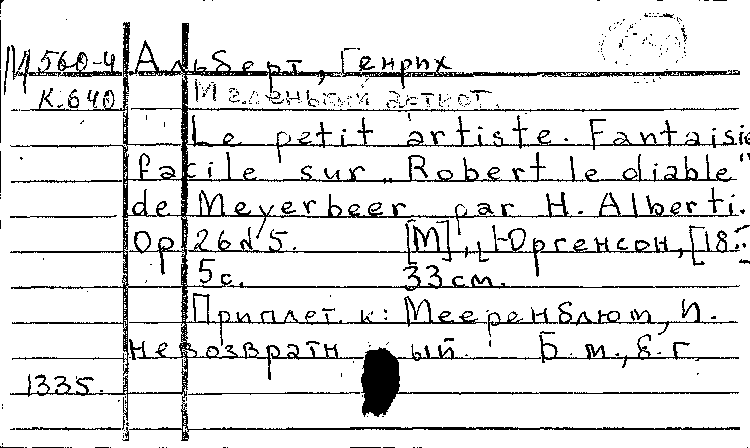 М 560-4 Альберт, Генрих
К.640 Маленький артист.
Le petit artiste. Fantaisie
facile sur „Robert le diable"
de Meyerbeer par H. Alberti.
Op 26 № 5. [М], Юргенсон, [18..
5с. 33см.
Приплет. к: Мееренблюм, И.
Невозвратный Б.м., б.г.
1335.